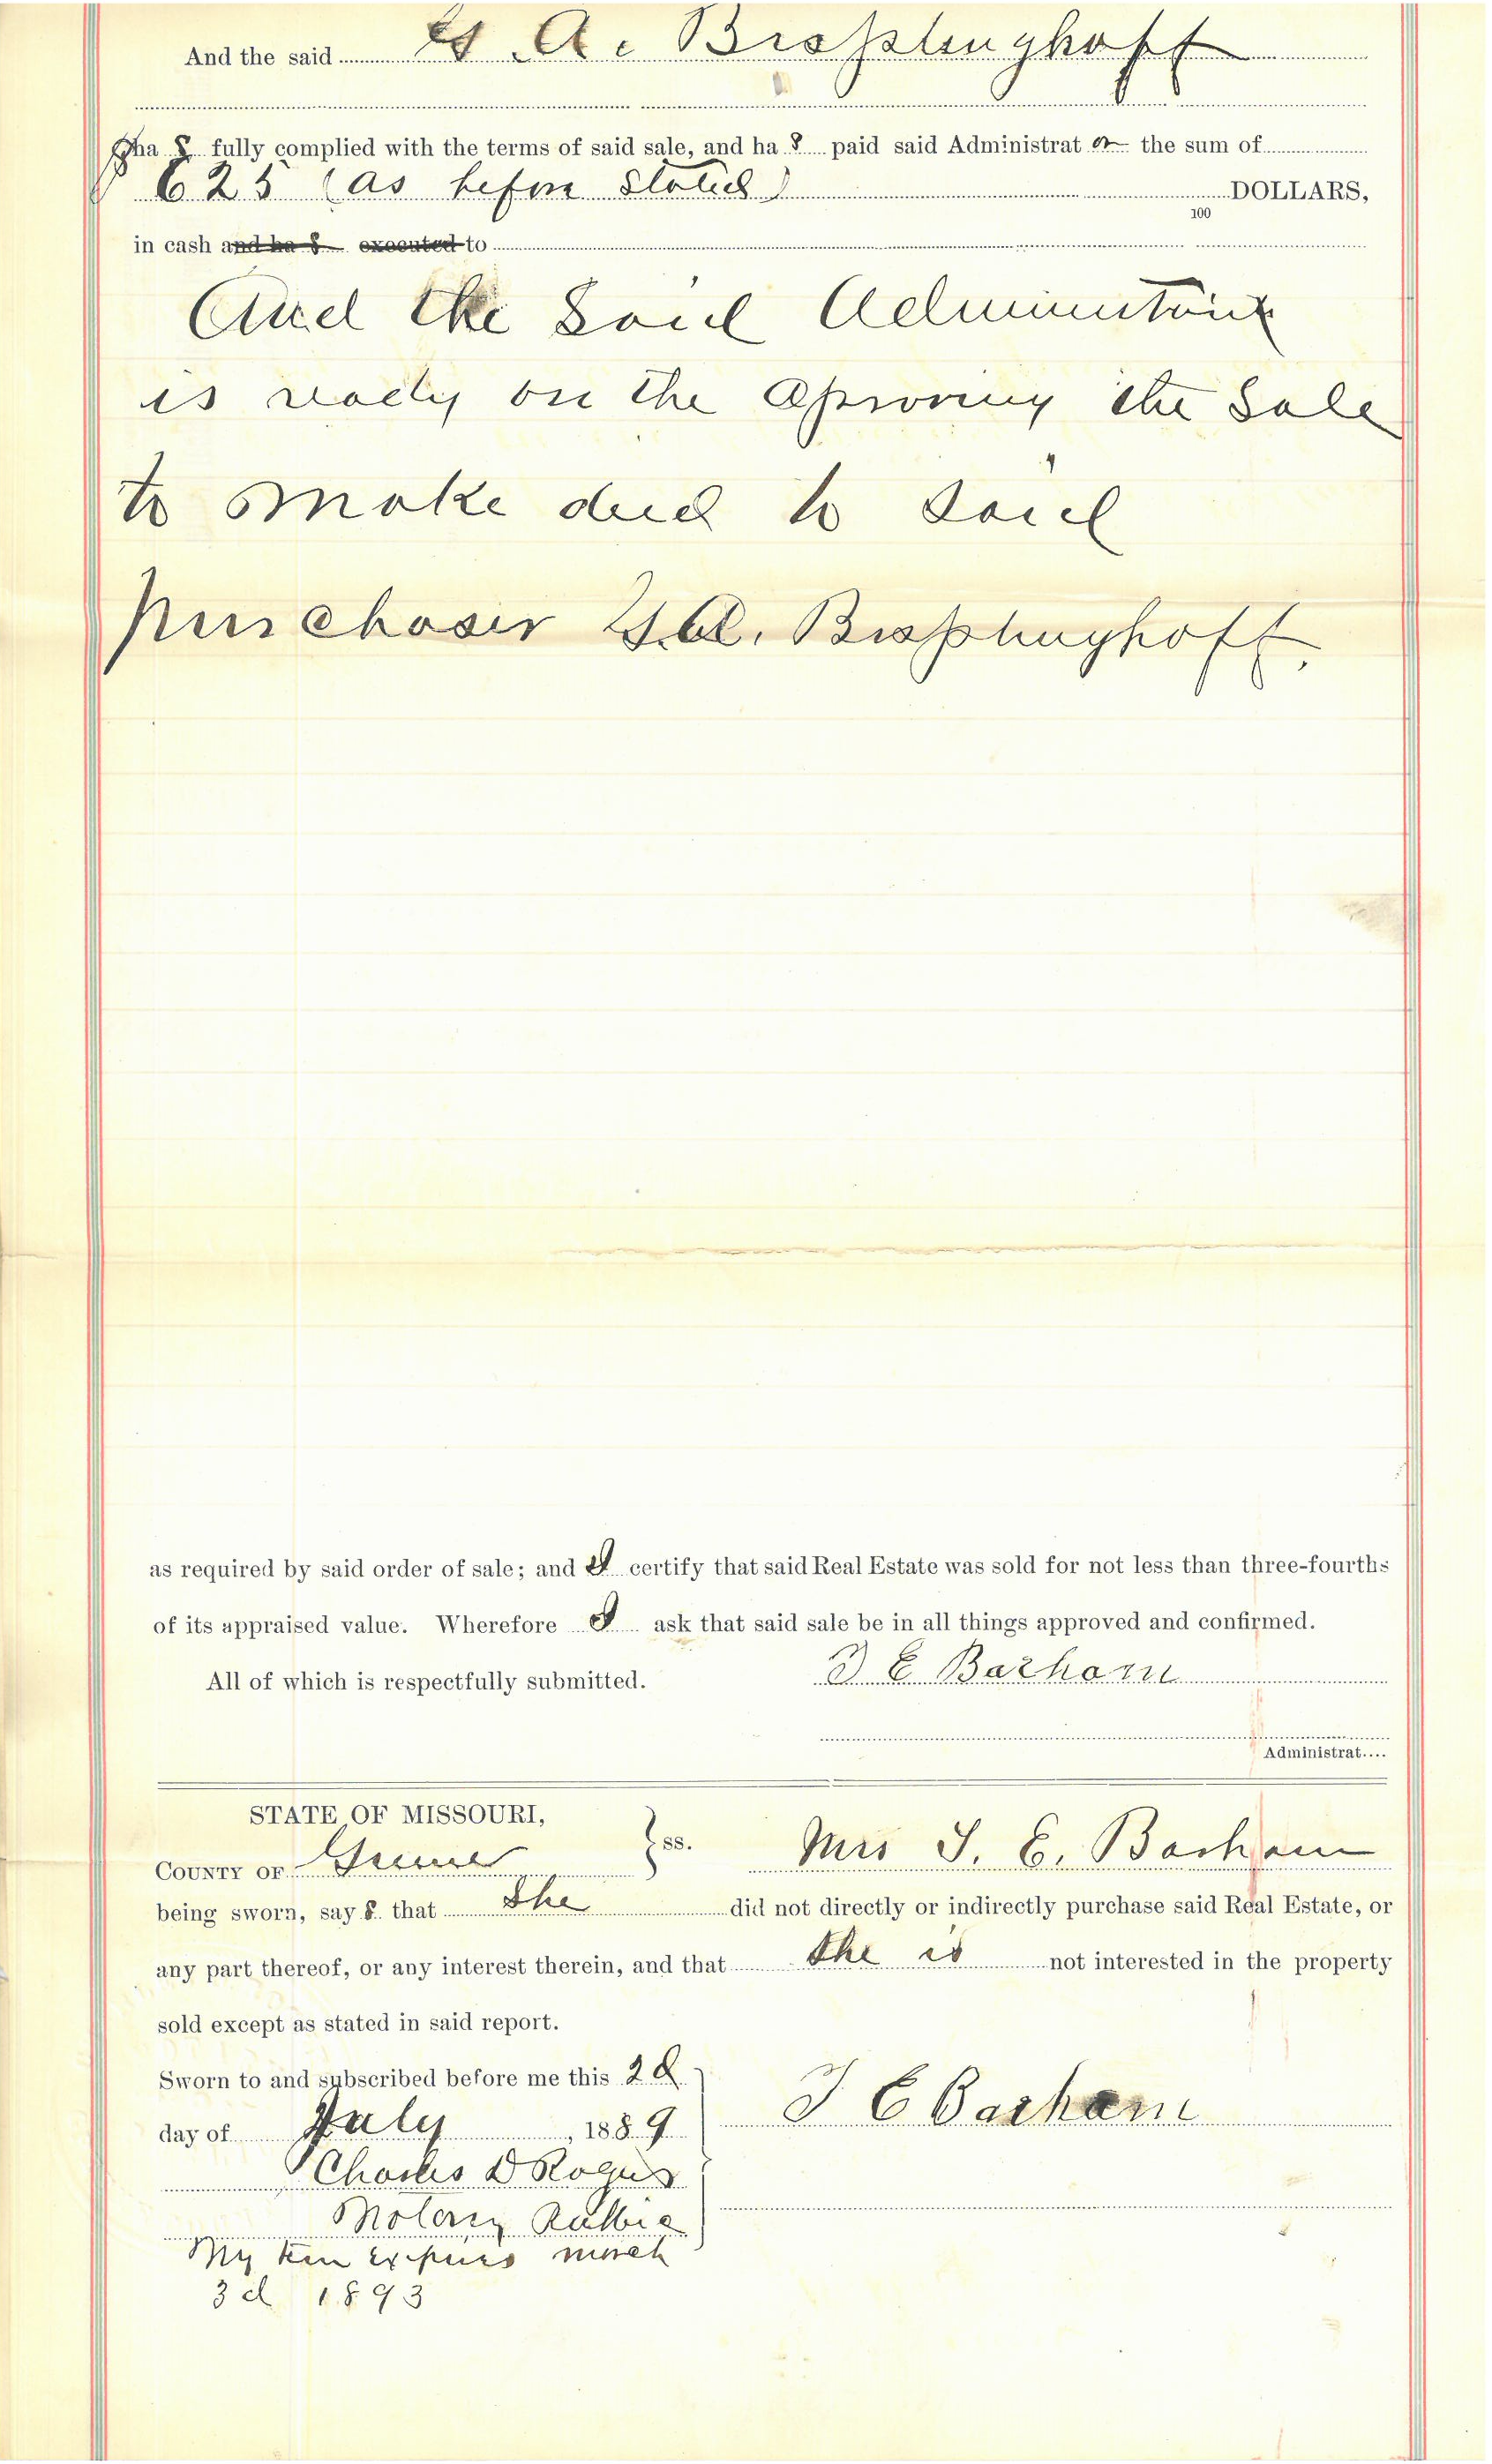 And the said G. A. Bisplinghoff
ha s fully complied with the terms of said sale, and ha s paid said Administrat or the sum of
$625 (as before stated) DOLLARS,
100
in cash and ha s executed to
And the Said Administrix
isready on the aproving the Sale
to make deed to said
purchaser G. A. Bisplinghoff.
as required by said order of sale; and I certify that said Real Estate was sold for not less than three-fourths
of its appraised value. Wherefore I ask that said sale be in all things approved and confirmed.
All of which is respectfully submitted. E Barham
Administrat....
STATE OF MISSOURI,
COUNTY OF Greene } ss. Mrs E. Barham
being sworn, say s that She did not directly or indirectly purchase said Real Estate, or
any part thereof, or any interest therein, and that she is not interested in the property
sold except as stated in said report.
Sworn to and subscribed before me this 2d
day of July, 1889 E Barham
Charles D Rogers
Notary Public
My term expires march
3d 1893